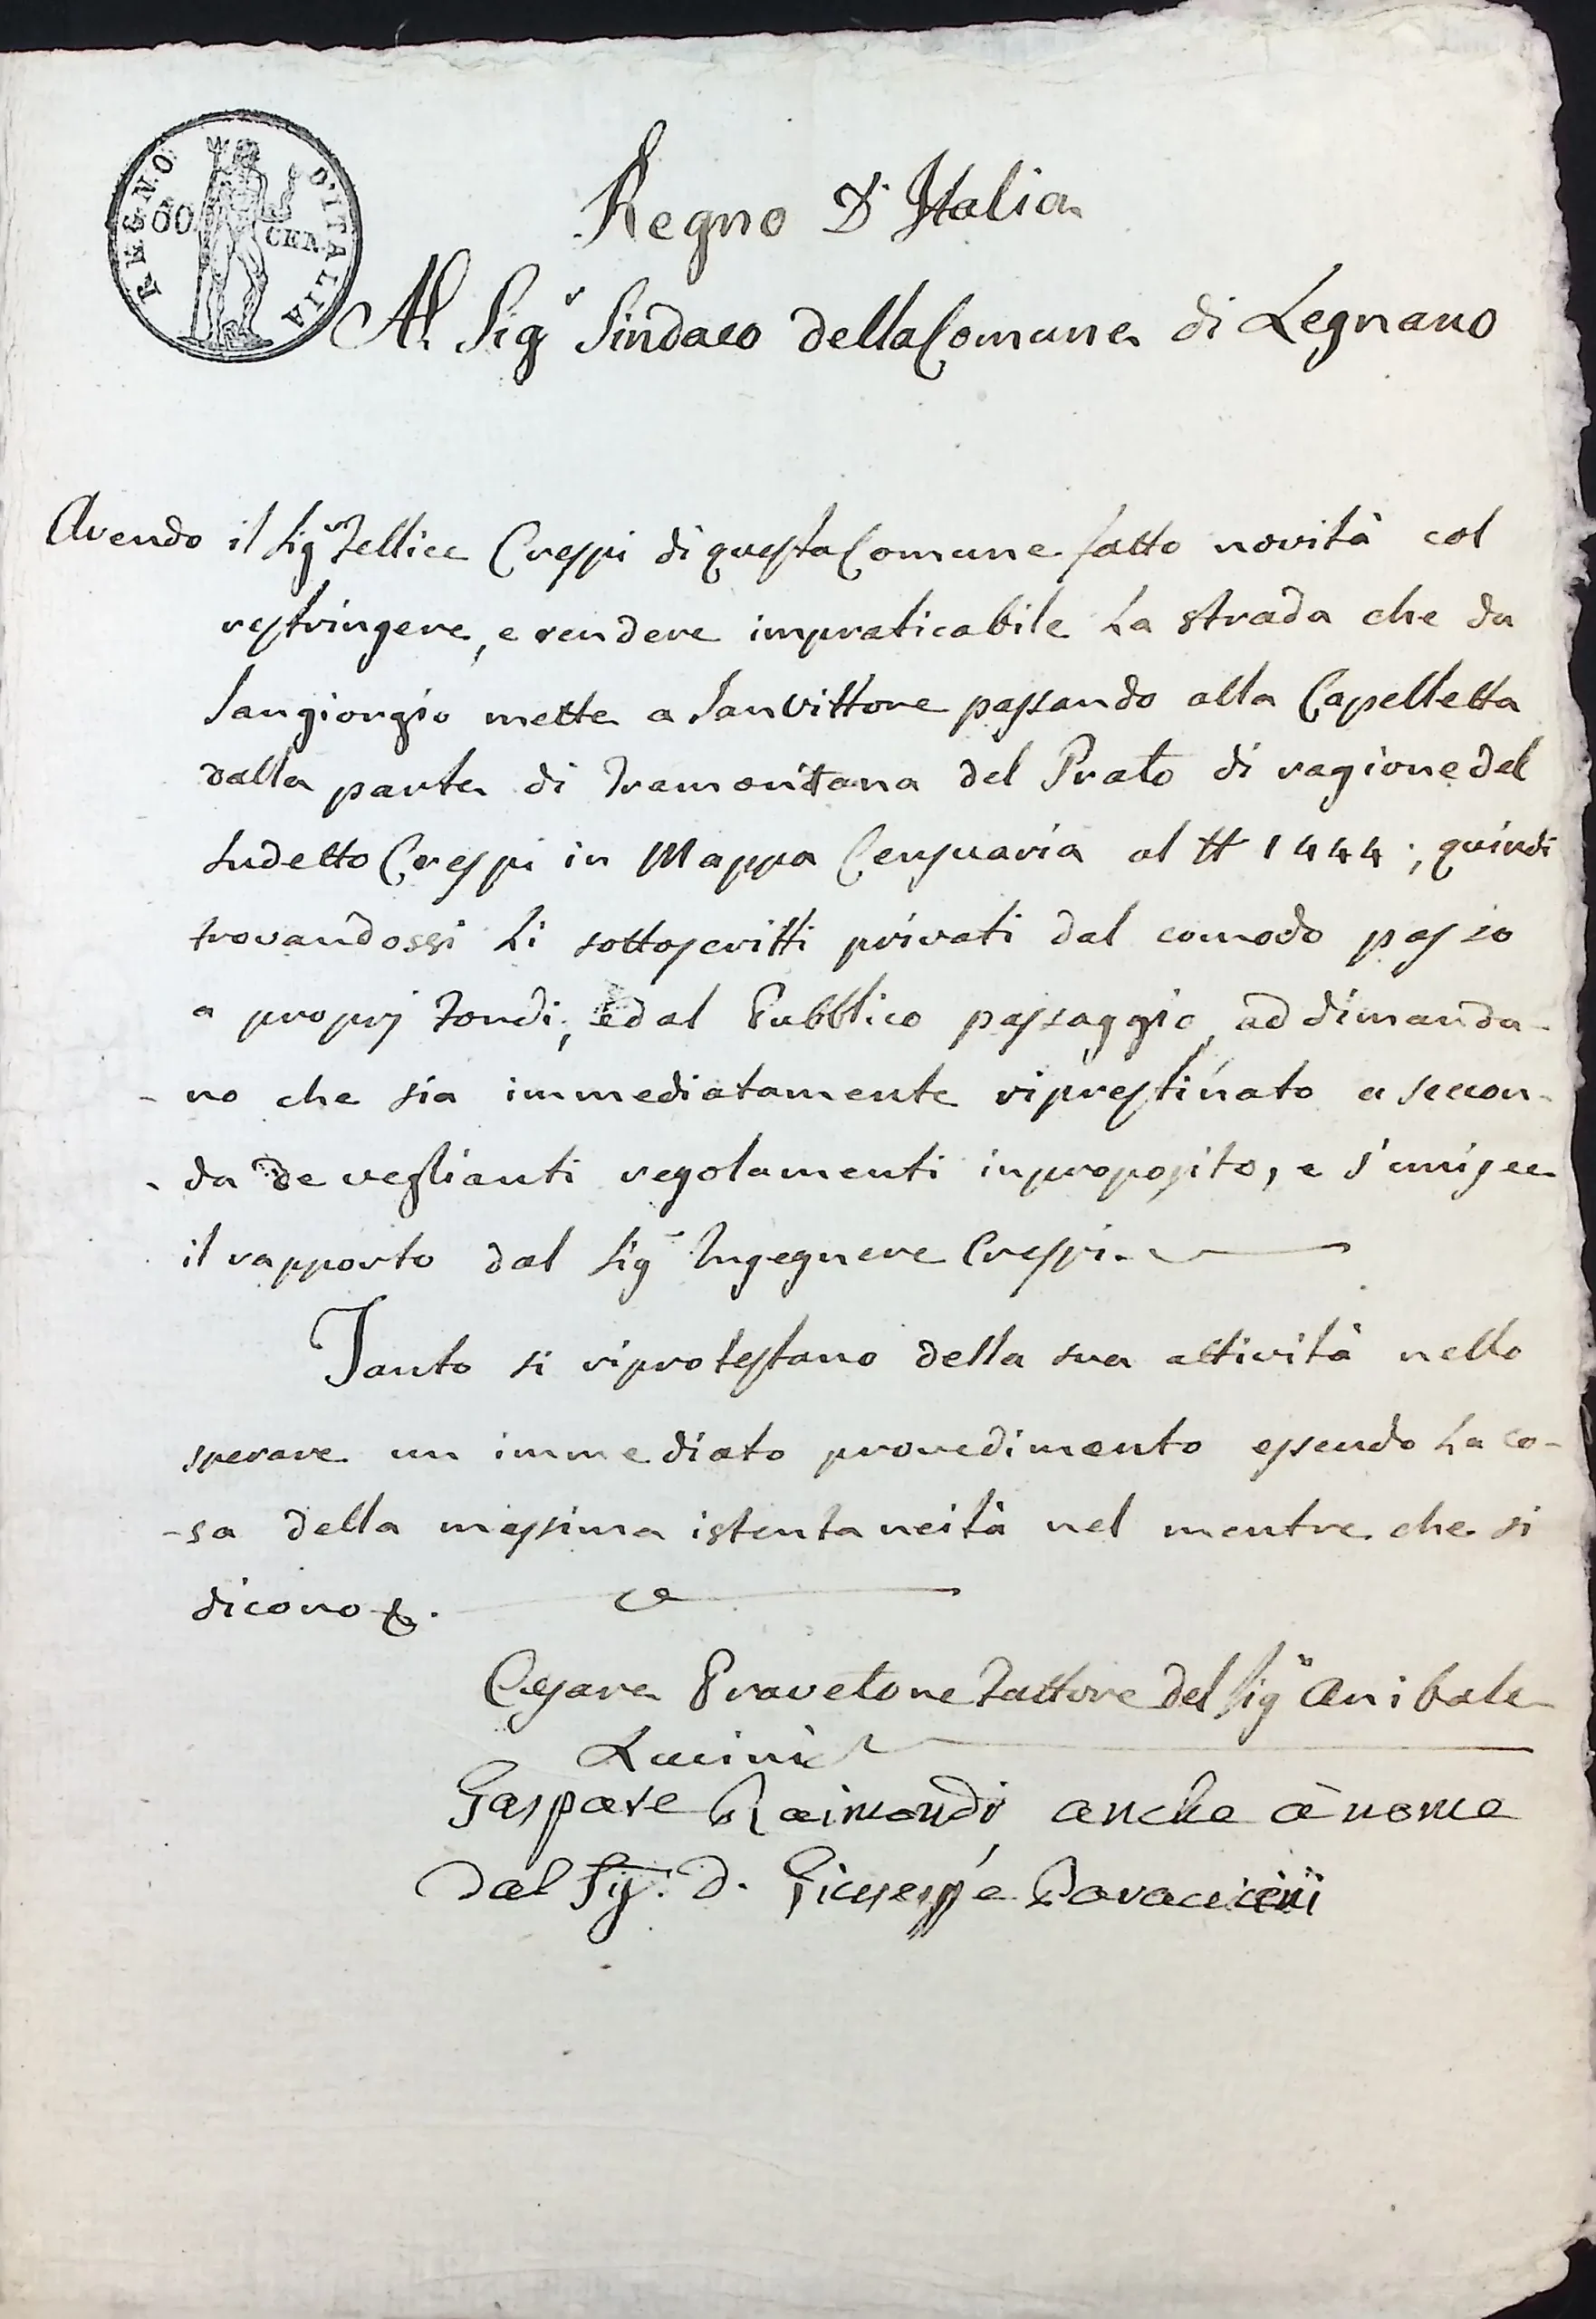 REGNO D'ITALIA
CEN.
Regno D'Italia
Al Sig.r Sindaco della Comune di Legnano
Avendo il Sig.r Fellice Crespi di questa Comune fatto novità col
restringere, e rendere impraticabile La strada che da
Sangiorgio mette a Sanvittore passando alla Capelletta
dalla parte di tramontana del Prato di ragione del
sudetto Crespi in Mappa Censuaria al N 1444; quindi
trovandossi Li sottoscritti privati dal comodo passo
a proprj Fondi, ed al Pubblico passaggio, addimanda-
-no che sia immediatamente ripristinato a secon-
-da de veglianti regolamenti inproposito, e s'unisce
il rapporto dal Sig.r Ingegnere Crespi.
Tanto si riprotestano della sua attività nello
sperare un immediato provedimento essendo La co-
-sa della massima istentaneità nel mentre che si
dicono
Cesare Pravetone Fattore del Sig.r Anibale
Lucini
Gaspare Raimondi anche à nome
dal Sig. D. Giuseppe